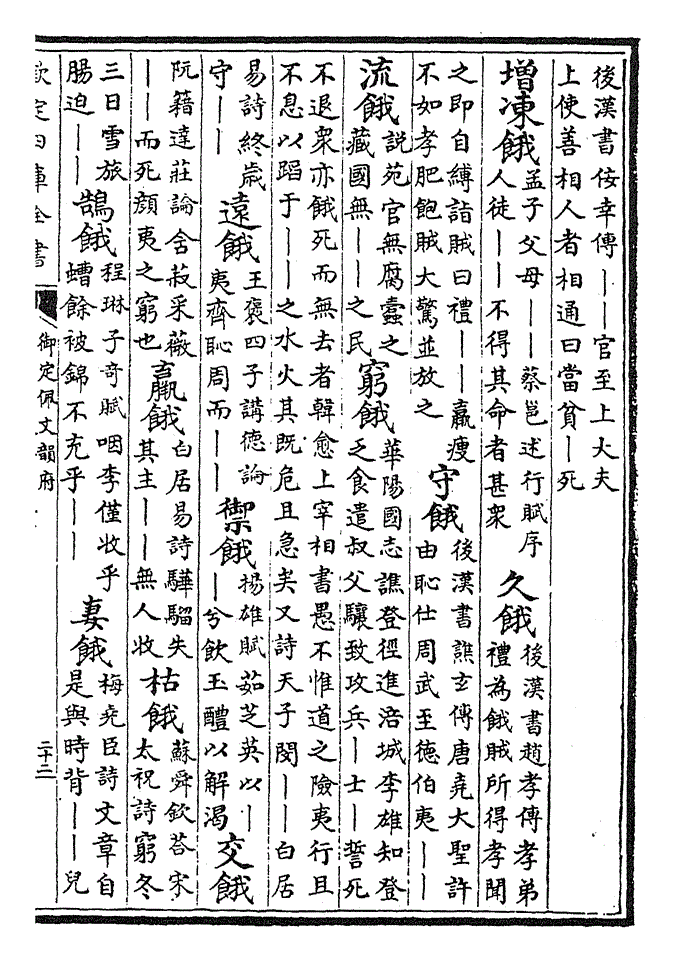 後漢書佞幸傳——官至上大夫
上使善相人者相通曰當貧—死
增凍餓
孟子父母——蔡邕述行賦序
人徒——不得其命者甚衆
久餓
後漢書趙孝傳孝弟
禮為餓賊所得孝聞
之即自縛詣賊曰禮——羸瘦
不如孝肥飽賊大驚並放之
守餓
後漢書譙玄傳唐堯大聖許
由恥仕周武至德伯夷——
流餓
説苑官無腐蠹之
藏國無——之民
窮餓
華陽國志譙登徑進涪城李雄知登
乏食遣叔父驤致攻兵—士—誓死
不退衆亦餓死而無去者韓愈上宰相書愚不惟道之險夷行且
不息以蹈于——之水火其既危且急矣又詩天子閔——白居
易詩終歳
守——
遠餓
王褒四子講德論
夷齊恥周而——
禦餓
揚雄賦茹芝英以—
—兮飲玉醴以解渴
交餓
阮籍達莊論舍菽采薇
——而死顔夷之窮也
羸餓
白居易詩驊騮失
其主——無人收
枯餓
蘇舜欽荅宋
太祝詩窮冬
三日雪旅
腸迫——
鵠餓
程琳子奇賦咽李僅收乎
螬餘被錦不充乎——
妻餓
梅堯臣詩文章自
是與時背——兒
欽定四庫全書
御定佩文韻府
二十二